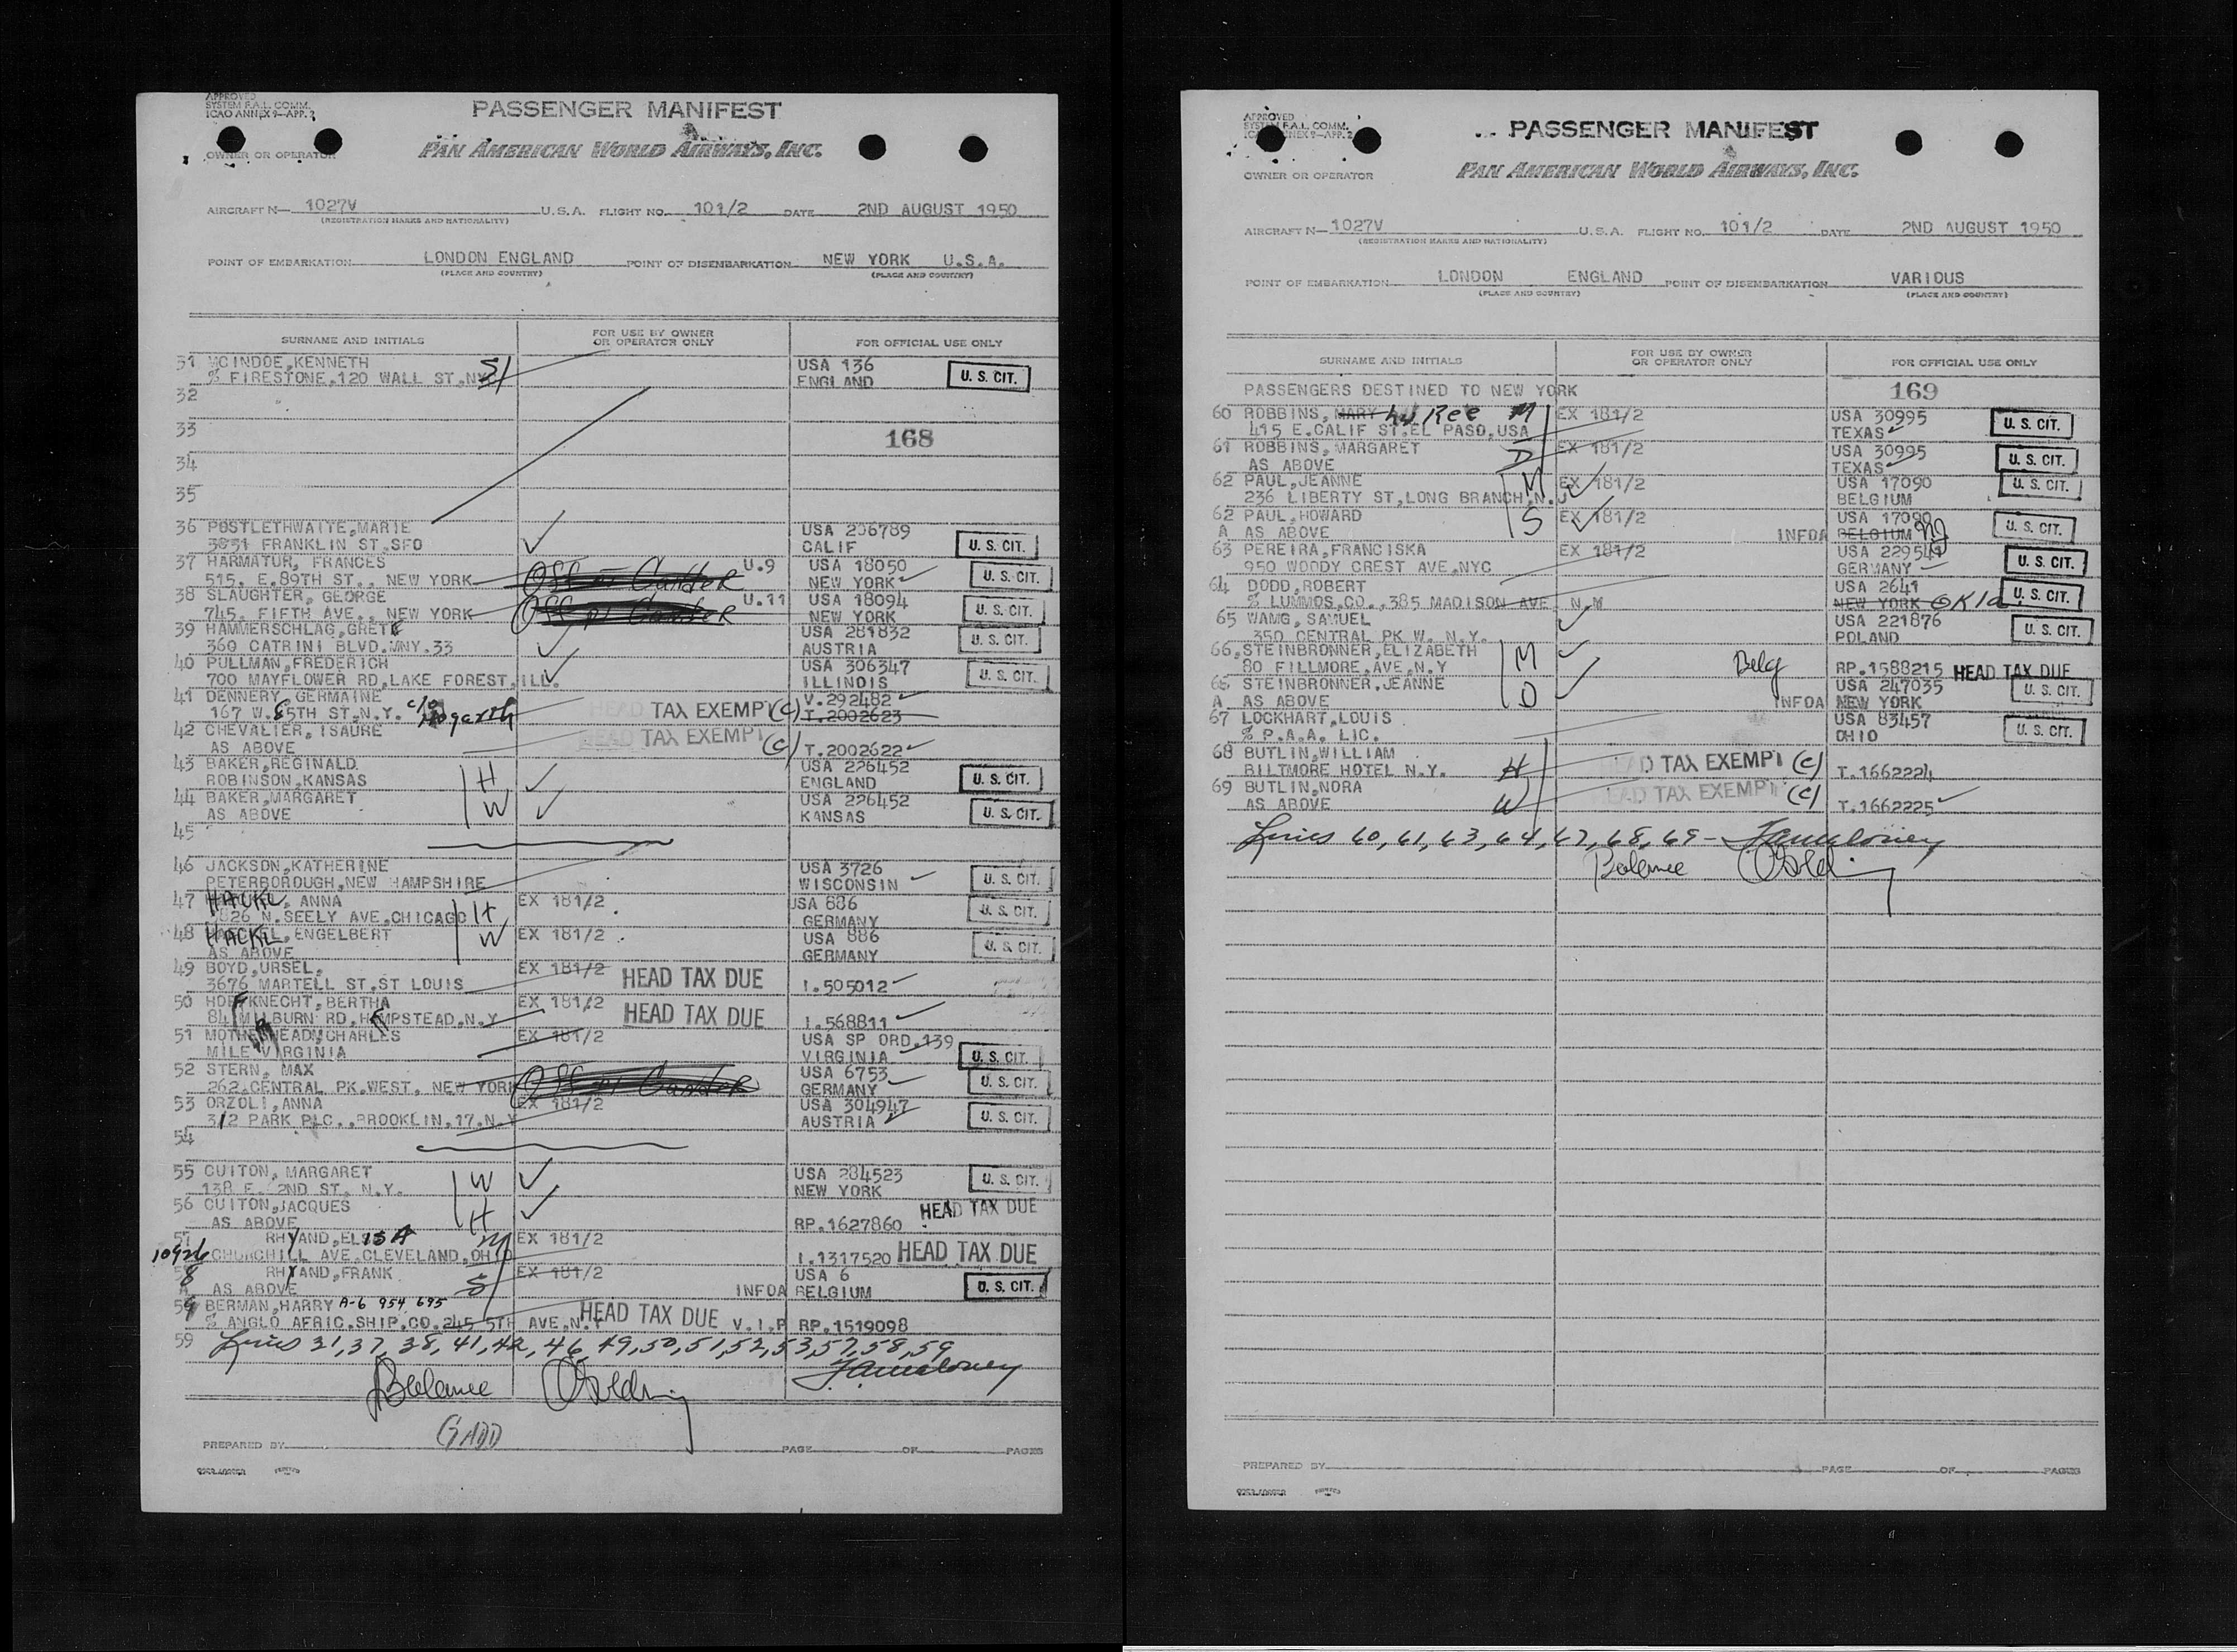 APPROVED
SYSTEM F.A.L. COMM.
ICAO ANNEX 9—APP. 2
PASSENGER MANIFEST
OWNER OR OPERATOR
PAN AMERICAN WORLD AIRWAYS, INC.
AIRCRAFT N— 1027V U.S.A. FLIGHT NO. 101/2 DATE 2ND AUGUST 1950
(REGISTRATION MARKS AND NATIONALITY)
POINT OF EMBARKATION LONDON ENGLAND POINT OF DISEMBARKATION NEW YORK U.S.A.
(PLACE AND COUNTRY) (PLACE AND COUNTRY)
SURNAME AND INITIALS FOR USE BY OWNER OR OPERATOR ONLY FOR OFFICIAL USE ONLY
31 MCINDOE,KENNETH S USA 136
% FIRESTONE,120 WALL ST,NYC ENGLAND U. S. CIT.
32
33 168
34
35
36 POSTLETHWAITE,MARIE USA 206789
3831 FRANKLIN ST,SFO CALIF U. S. CIT.
37 HARMATUR, FRANCES U.9 USA 18050
515. E.89TH ST., NEW YORK NEW YORK U. S. CIT.
38 SLAUGHTER, GEORGE U.11 USA 18094
745. FIFTH AVE., NEW YORK NEW YORK U. S. CIT.
39 HAMMERSCHLAG,GRETE USA 281832
360 CATRINI BLVD.MNY.33 AUSTRIA U. S. CIT.
40 PULLMAN,FREDERICH USA 306347
700 MAYFLOWER RD,LAKE FOREST,ILL. ILLINOIS U. S. CIT.
41 DENNERY,GERMAINE V.292482
167 W.85TH ST.N.Y. c/o Hogarth HEAD TAX EXEMPT (c) T.2002623
42 CHEVALIER,ISAURE HEAD TAX EXEMPT (c)
AS ABOVE T.2002622
43 BAKER,REGINALD. H USA 226452
ROBINSON,KANSAS ENGLAND U. S. CIT.
44 BAKER,MARGARET W USA 226452
AS ABOVE KANSAS U. S. CIT.
45
46 JACKSON,KATHERINE USA 3726
PETERBOROUGH,NEW HAMPSHIRE WISCONSIN U. S. CIT.
47 HACKL, ANNA H EX 181/2 USA 886
826 N.SEELY AVE,CHICAGO GERMANY U. S. CIT.
48 HACKL, ENGELBERT W EX 181/2 USA 886
AS ABOVE GERMANY U. S. CIT.
49 BOYD,URSEL, EX 181/2 HEAD TAX DUE
3676 MARTELL ST,ST LOUIS I.505012
50 HOFFKNECHT,BERTHA EX 181/2 HEAD TAX DUE
84 MILBURN RD,HEMPSTEAD,N.Y I.568811
51 CHARLES EX 181/2 USA SP ORD.139
MILE VIRGINIA VIRGINIA U. S. CIT.
52 STERN, MAX USA 6753
262.CENTRAL PK.WEST, NEW YORK GERMANY U. S. CIT.
53 ORZOLI,ANNA EX 181/2 USA 304947
312 PARK PLC.,BROOKLIN,17,N.Y AUSTRIA U. S. CIT.
54
55 CUITON, MARGARET W USA 284523
138 E. 2ND ST. N.Y. NEW YORK U. S. CIT.
56 CUITON,JACQUES H HEAD TAX DUE
AS ABOVE RP.1627860
57 RHYAND,ELISA M EX 181/2
10926 CHURCHILL AVE,CLEVELAND,OHIO I.1317520 HEAD TAX DUE
58 RHYAND,FRANK S EX 181/2 USA 6
A AS ABOVE INFOA BELGIUM U. S. CIT.
59 BERMAN,HARRY A-6 954 695 HEAD TAX DUE
% ANGLO AFRIC.SHIP.CO.245 5TH AVE.N.Y V.I.P RP.1519098
59 Lines 31,37,38,41,42,46,49,50,51,52,53,57,58,59
Balance
GADD
PREPARED BY PAGE OF PAGES
APPROVED
SYSTEM F.A.L. COMM.
ICAO ANNEX 9—APP. 2
PASSENGER MANIFEST
OWNER OR OPERATOR
PAN AMERICAN WORLD AIRWAYS, INC.
AIRCRAFT N— 1027V U.S.A. FLIGHT NO. 101/2 DATE 2ND AUGUST 1950
(REGISTRATION MARKS AND NATIONALITY)
POINT OF EMBARKATION LONDON ENGLAND POINT OF DISEMBARKATION VARIOUS
(PLACE AND COUNTRY) (PLACE AND COUNTRY)
SURNAME AND INITIALS FOR USE BY OWNER OR OPERATOR ONLY FOR OFFICIAL USE ONLY
PASSENGERS DESTINED TO NEW YORK 169
60 ROBBINS, MARY Ree M EX 181/2 USA 30995
415 E.CALIF ST,EL PASO,USA TEXAS U. S. CIT.
61 ROBBINS, MARGARET D EX 181/2 USA 30995
AS ABOVE TEXAS U. S. CIT.
62 PAUL,JEANNE M EX 181/2 USA 17090
236 LIBERTY ST,LONG BRANCH,N.J BELGIUM U. S. CIT.
62 PAUL,HOWARD S EX 181/2 USA 17090
A AS ABOVE INFOA BELGIUM NJ U. S. CIT.
63 PEREIRA,FRANCISKA EX 181/2 USA 229541
950 WOODY CREST AVE,NYC GERMANY U. S. CIT.
64 DODD,ROBERT USA 2641
% LUMMOS,CO.,385 MADISON AVE, N.Y NEW YORK OKla U. S. CIT.
65 WAMG, SAMUEL USA 221876
350 CENTRAL PK W. N.Y. POLAND U. S. CIT.
66 STEINBRONNER,ELIZABETH M
80 FILLMORE,AVE,N.Y Belg RP.1588215 HEAD TAX DUE
66 STEINBRONNER,JEANNE D USA 247035
A AS ABOVE INFOA NEW YORK U. S. CIT.
67 LOCKHART,LOUIS USA 83457
% P.A.A. LIC. OHIO U. S. CIT.
68 BUTLIN,WILLIAM HEAD TAX EXEMPT (c)
BILTMORE HOTEL N.Y. H T.1662224
69 BUTLIN,NORA HEAD TAX EXEMPT (c)
AS ABOVE W T.1662225
Lines 60,61,63,64,67,68,69 –
Balance
PREPARED BY PAGE OF PAGES